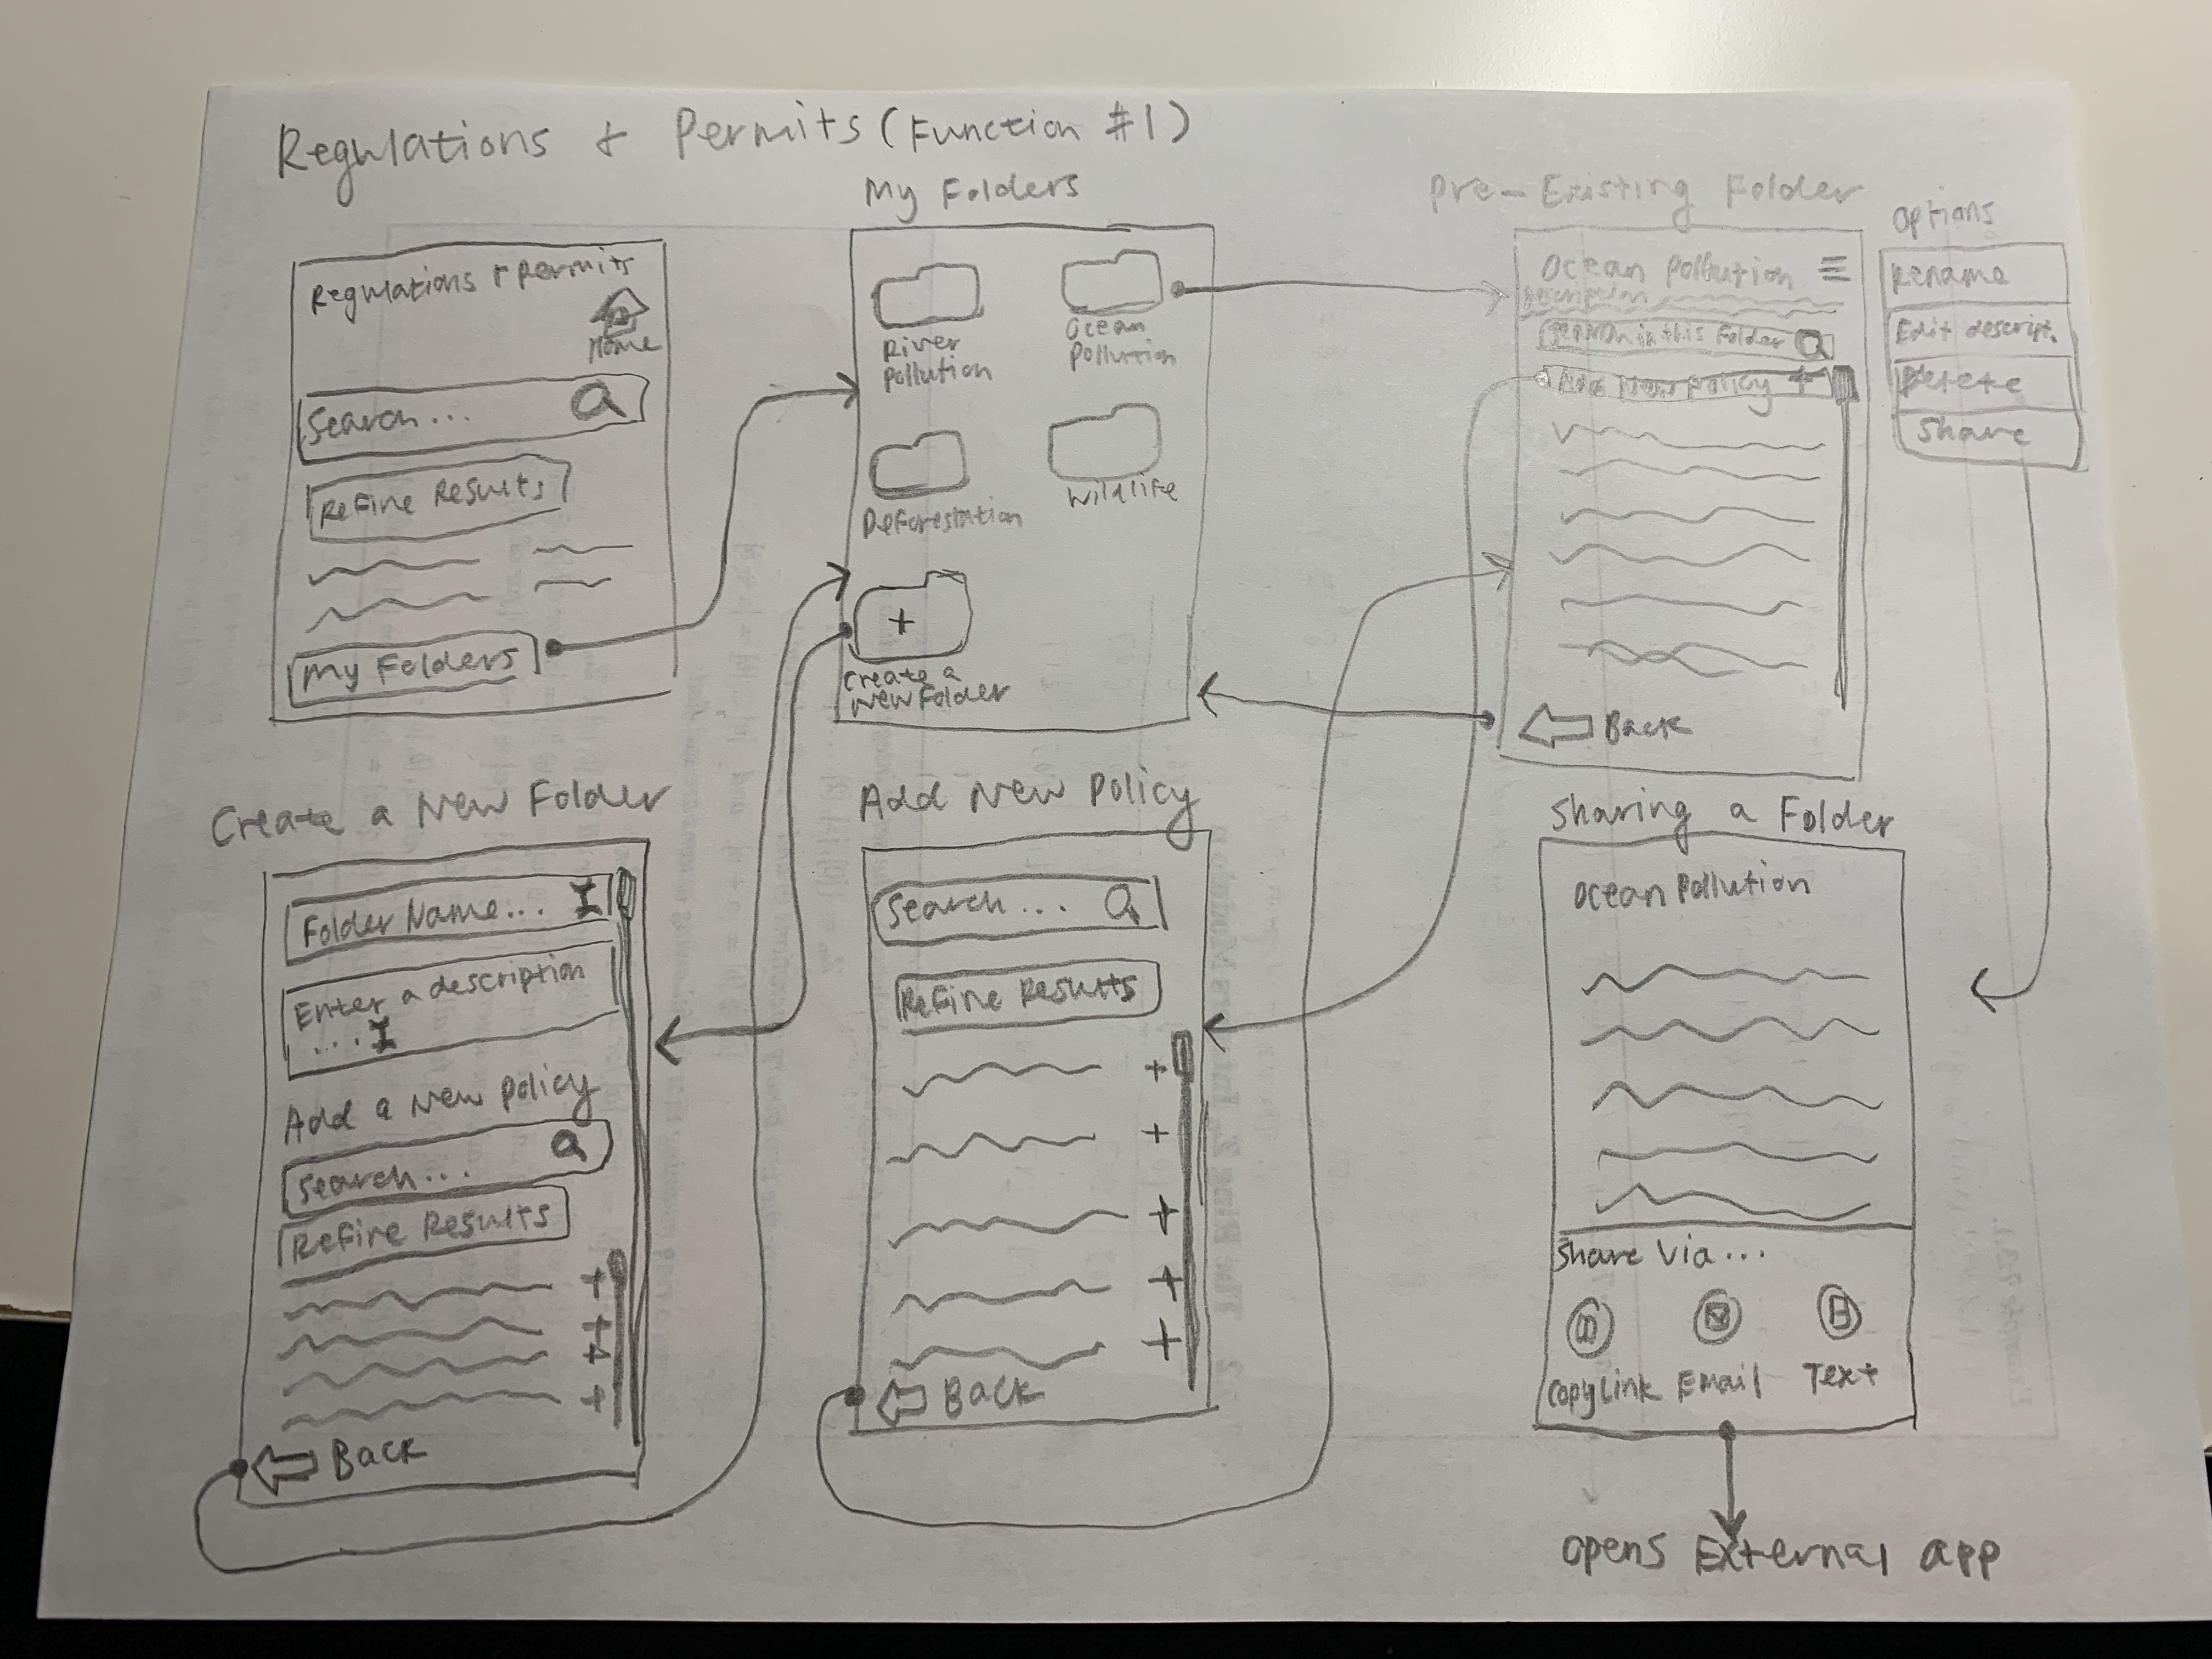 Regulations + Permits (Function #1)
Regulations + Permits
Home
Search...
Refine Results
My Folders
My Folders
River
Pollution
Ocean
Pollution
Deforestation
Wildlife
+
Create a
New Folder
Pre-Existing Folder
Ocean Pollution
Description
Search in this Folder
Add New Policy +
Back
Options
Rename
Edit descript.
Delete
Share
Create a New Folder
Folder Name... I
Enter a description
... I
Add a New Policy
Search...
Refine Results
+
+
+
+
Back
Add New Policy
Search...
Refine Results
+
+
+
+
+
Back
Sharing a Folder
Ocean Pollution
Share Via...
Copy Link Email Text
Opens External app